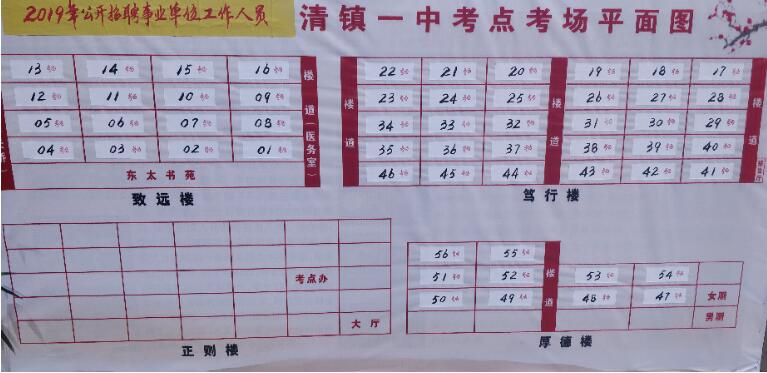 2019年公开招聘事业单位工作人员
清镇一中考点考场平面图
13 14 15 16
12 11 10 09
05 06 07 08
04 03 02 01
楼道(医务室)
东太书苑
致远楼
22 21 20 19 18 17
23 24 25 26 27 28
34 33 32 31 30 29
35 36 37 38 39 40
46 45 44 43 42 41
楼道
楼道
楼道
笃行楼
考点办
大厅
正则楼
56 55
51 52 53 54
50 49 48 47 女厕
男厕
楼道
厚德楼